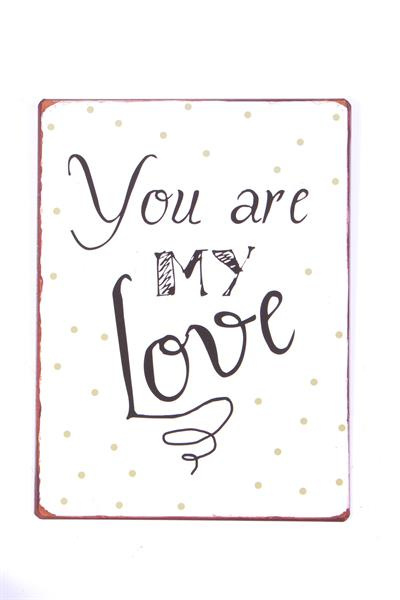 You are
MY
Love